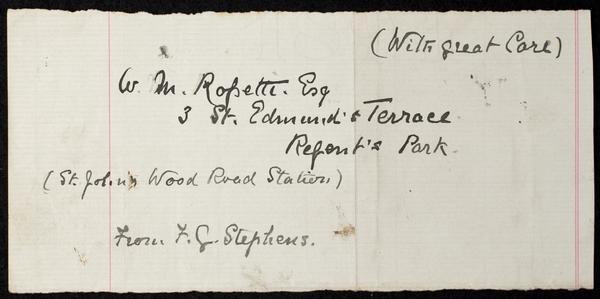 (With great Care)
W. M. Rossetti. Esq
3 St. Edmund's Terrace
Regent's Park.
(St. John's Wood Road Station)
From F. G. Stephens.